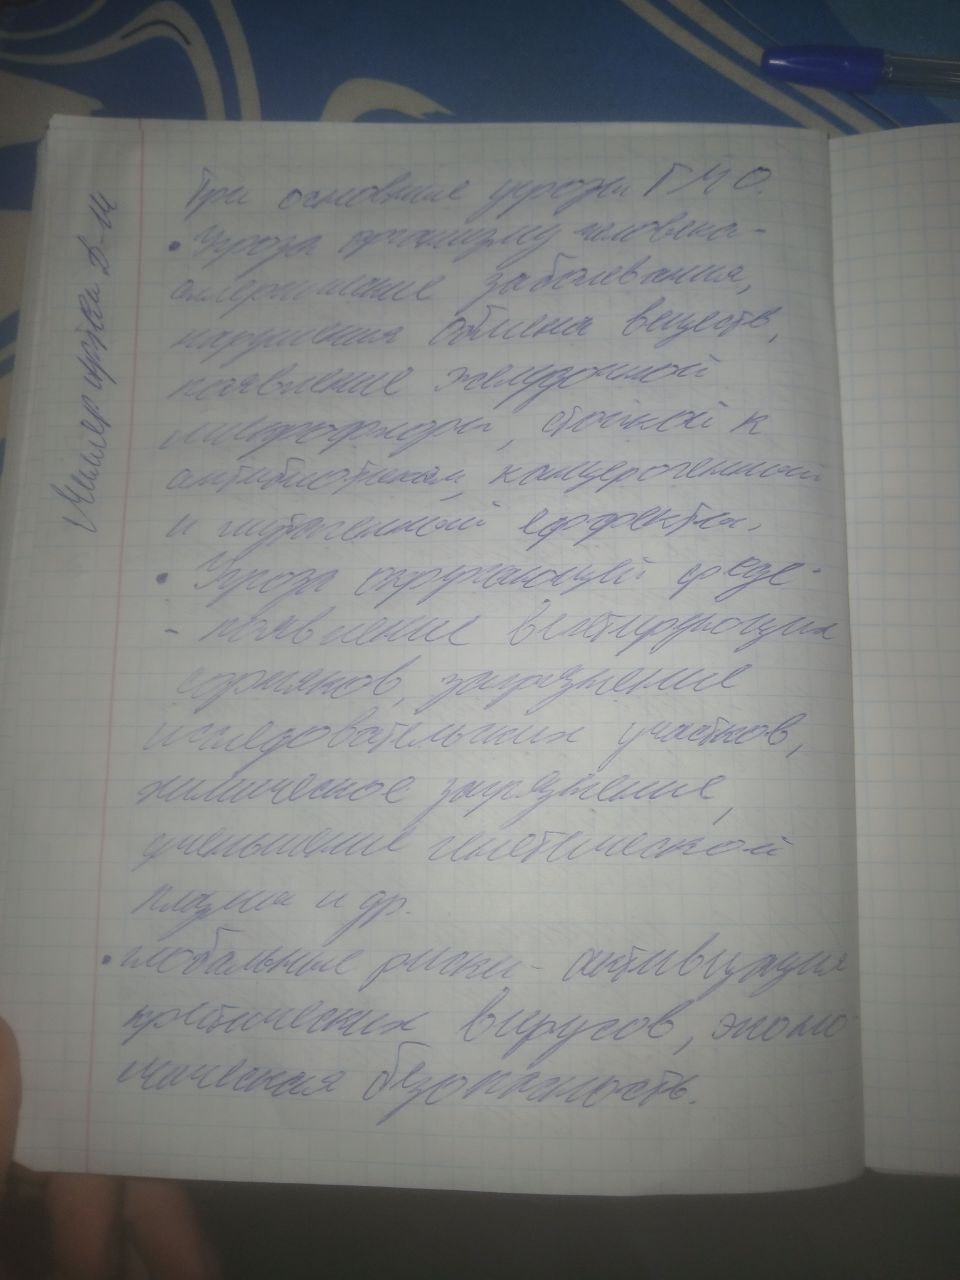 Три основные угрозы ГМО.
• Угроза организму человека -
аллергические заболевания,
нарушения обмена веществ,
появление желудочной
микрофлоры, стойкой к
антибиотикам, канцерогенный
и мутагенный еффекты.
• Угроза окружающей среде -
- появление вегетирующих
сорняков, загрязнение
исследовательских участков,
химическое загрязнение,
уменьшение генетической
плазмы и др.
• глобальные риски - активизация
критических вирусов, эконо
мическая безопасность.